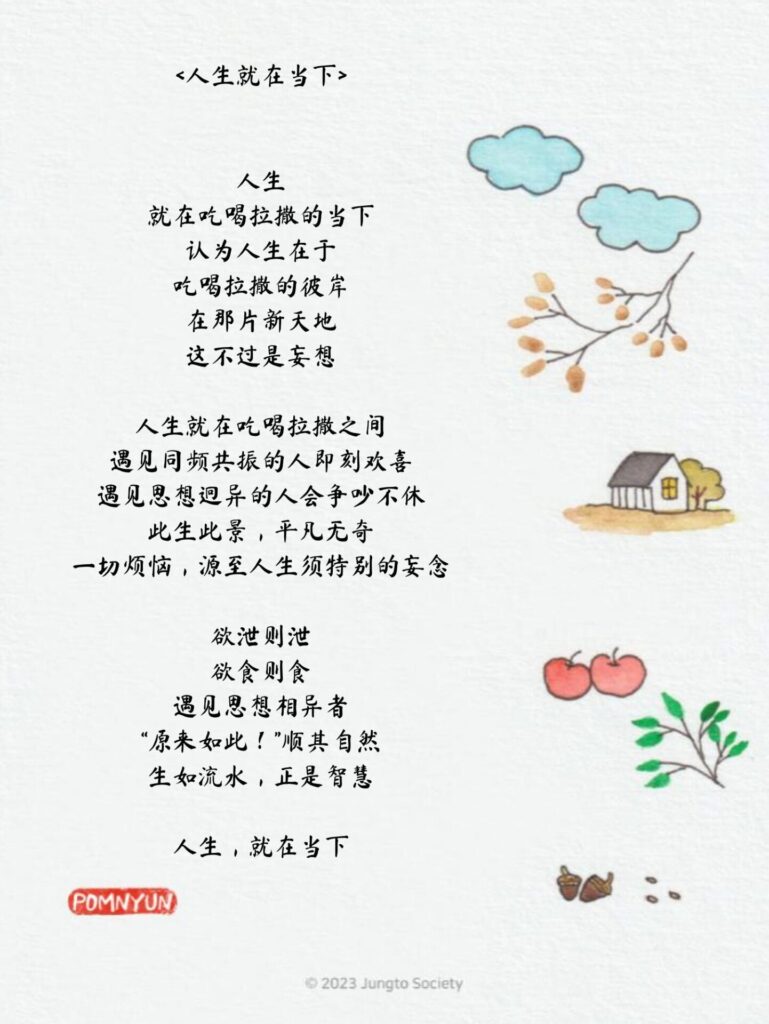 <人生就在当下>
人生
就在吃喝拉撒的当下
认为人生在于
吃喝拉撒的彼岸
在那片新天地
这不过是妄想
人生就在吃喝拉撒之间
遇见同频共振的人即刻欢喜
遇见思想迥异的人会争吵不休
此生此景，平凡无奇
一切烦恼，源至人生须特别的妄念
欲泄则泄
欲食则食
遇见思想相异者
“原来如此！”顺其自然
生如流水，正是智慧
人生，就在当下
POMNYUN
© 2023 Jungto Society